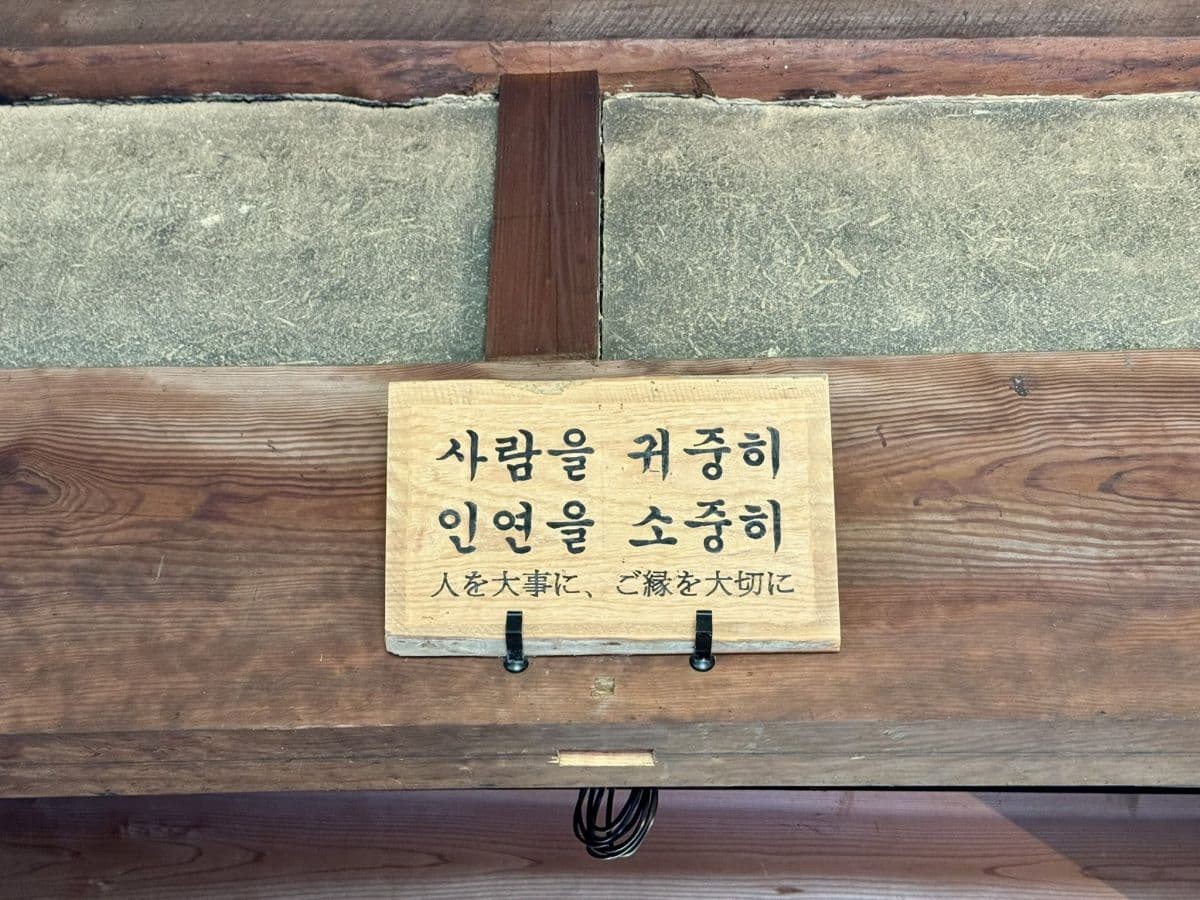 사람을 귀중히
인연을 소중히
人を大事に、ご縁を大切に